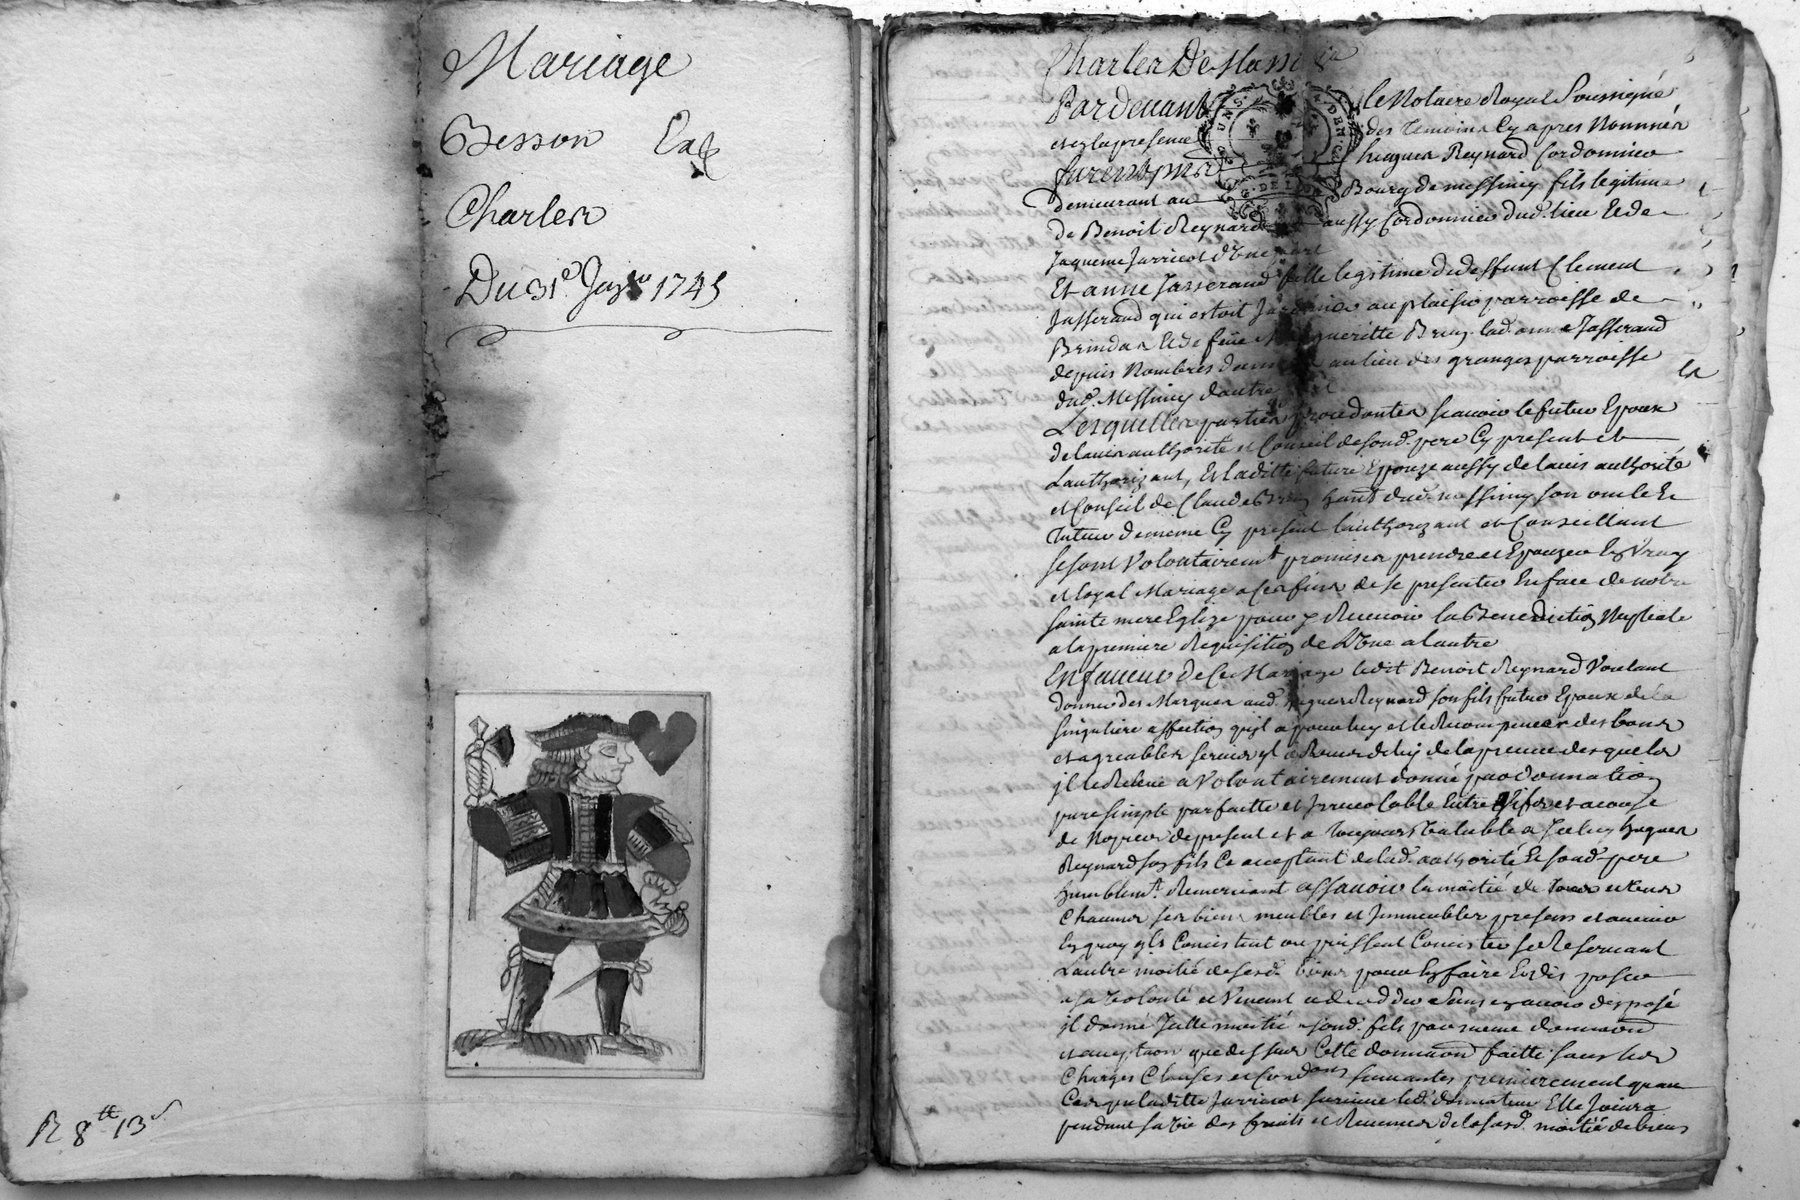 Mariage
Besson Et
Charlen
Du 31e Janv 1745
R 8tt 13s
Charlen De Mass
Pardevant le Notaire Royal Soussigné
et en la presence des Temoins Cy apres Nommés
furent pnt hugues Reynard Cordonnier
demeurant au Bourg de messimy fils legitime
de Benoit Reynard aussy Cordonnier dud. lieu Et de
Jaqueme Jarricot d'Une part
Et anne Jasserand fille legitime de deffunt Clement
Jasserand qui estoit au plaisir parroisse de
Brindas Et de feüe Margueritte Bruy lad. anne Jasserand
depuis Nombres au lieu des granges parroisse
dud. Messimy d'autre
Lesquelles parties procedantes scavoir le futur Epoux
de lauthorité et Conseil de sond. pere Cy present et
Lauthorizant, Et laditte future Epouze aussy de lavis authorité
et Conseil de Claude habt dud. messimy son oncle Et
Tuteur Cy present lauthorizant et Conseillant
se sont Volontairemt promis prendre et Epouzer En Vray
et loyal Mariage a Ces fins de se presenter En face de notre
sainte mere Eglize pour y Recevoir la Benediction Nuptiale
a la premiere Requisition de L'Une a lautre
En faveur de Ce Mariage ledit Benoit Reynard Voulant
donner des Marques aud. hugues Reynard son fils futur Epoux de la
singuliere affection quil a pour luy et le Recompencer des bons
et agreables services quil a Receu de luy de la preuve desquels
il le Releve a Volontairement donné par donnation
pure simple parfaitte et Irrevocable Entre Vifs et a cause
de Nopces de present et a Toujours Valable a Icelluy hugues
Reynard son fils Ce acceptant de lad. authorité Et sond. pere
humblemt. Remerciant assavoir la moitié de Tous et Uns
Chacuns ses biens meubles et Immeubles presens et avenir
En quoy qils Concistent ou puissent Concister se Reservant
Lautre moitié de sesd. biens pour En faire Et dis poser
a sa Volonté et Venant a deceder Sans En avoir disposé
il donne Jcelle moitié a sond. fils par meme donnaon
et acceptaon que dessus Cette donnaon faitte sous les
Charges Clauses et Condons suivantes premierement quau
Cas que laditte Jarricot survive led. donnateur Elle Joüira
pendant sa Vie des fruits et Revenus de la susd. moitié de biens